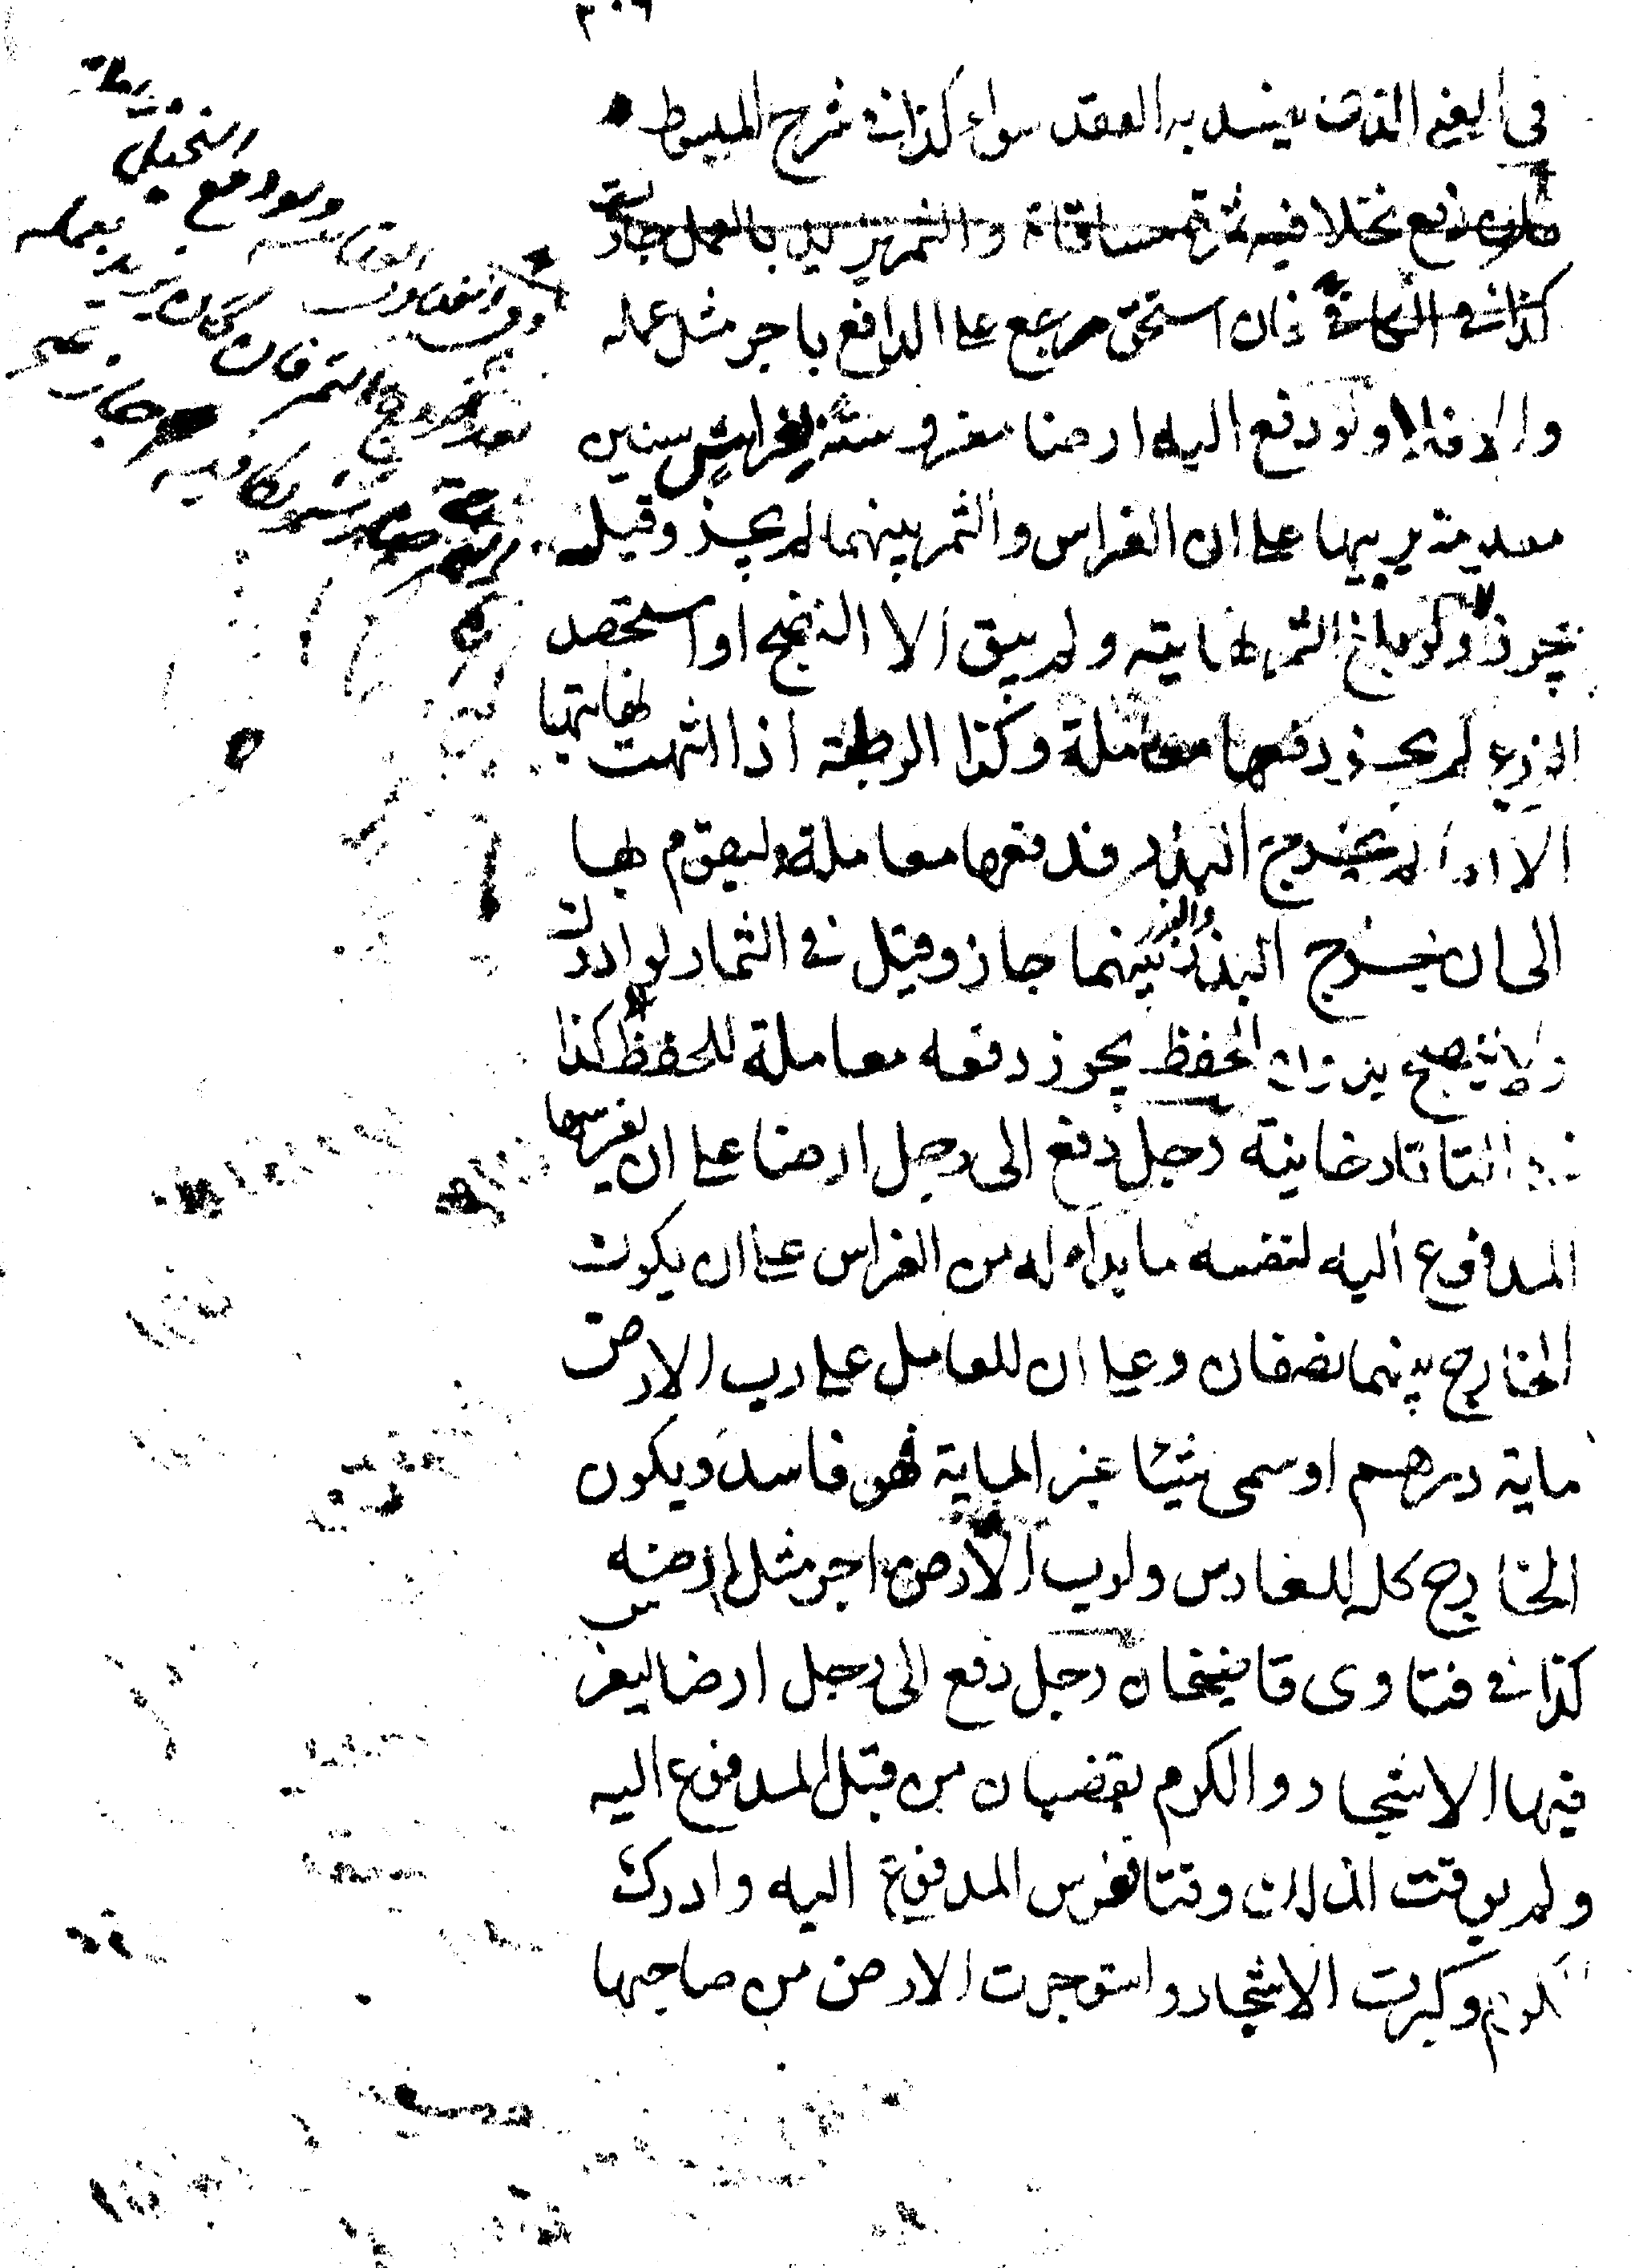 ٣٠٦
في المعنى الذي يفسد به العقد سواء كذا في شرح المبسوط
دفع نخلا فيه ثمرة مساقاة والثمر يزيد بالعمل جاز
كذا في الكافي فان استحق يرجع على الدافع باجر مثل عمله
والا فلا ولو دفع اليه ارضا مغروسة سنين
معلومة يربيها على ان الغراس والثمر بينهما لم يجز وقيل
يجوز ولو بلغ الثمر نهايته ولم يبق الا النضج او استحصد
الزرع لم يجز دفعها معاملة وكذا الرطبة اذا انتهت نهايتها
الا انه لم يخرج البذر فدفعها معاملة ليقوم بها
الى ان يخرج البذر بينهما جاز وقيل في الثمار لو ادرك
ولا ينضج الحفظ يجوز دفعه معاملة للحفظ كذا
في التاتارخانية رجل دفع الى رجل ارضا على ان يغرسها
المدفوع اليه لنفسه ما بداء له من الغراس على ان يكون
الخارج بينهما نصفان وعلى ان للعامل على رب الارض
ماية درهم او سمى شيئا غير الماية فهو فاسد ويكون
الخارج كله للغارس ولرب الارض اجر مثل ارضه
كذا في فتاوى قاضيخان رجل دفع الى رجل ارضا ليغرس
فيها الاشجار والكرم بقضبان من قبل المدفوع اليه
ولم يوقت لذلك وقتا فغرس المدفوع اليه وادرك
الكرم وكبرت الاشجار واستوجرت الارض من صاحبها
النخيل
ولو دفع
بعد خروج الثمر فان كان يزيد بعمله